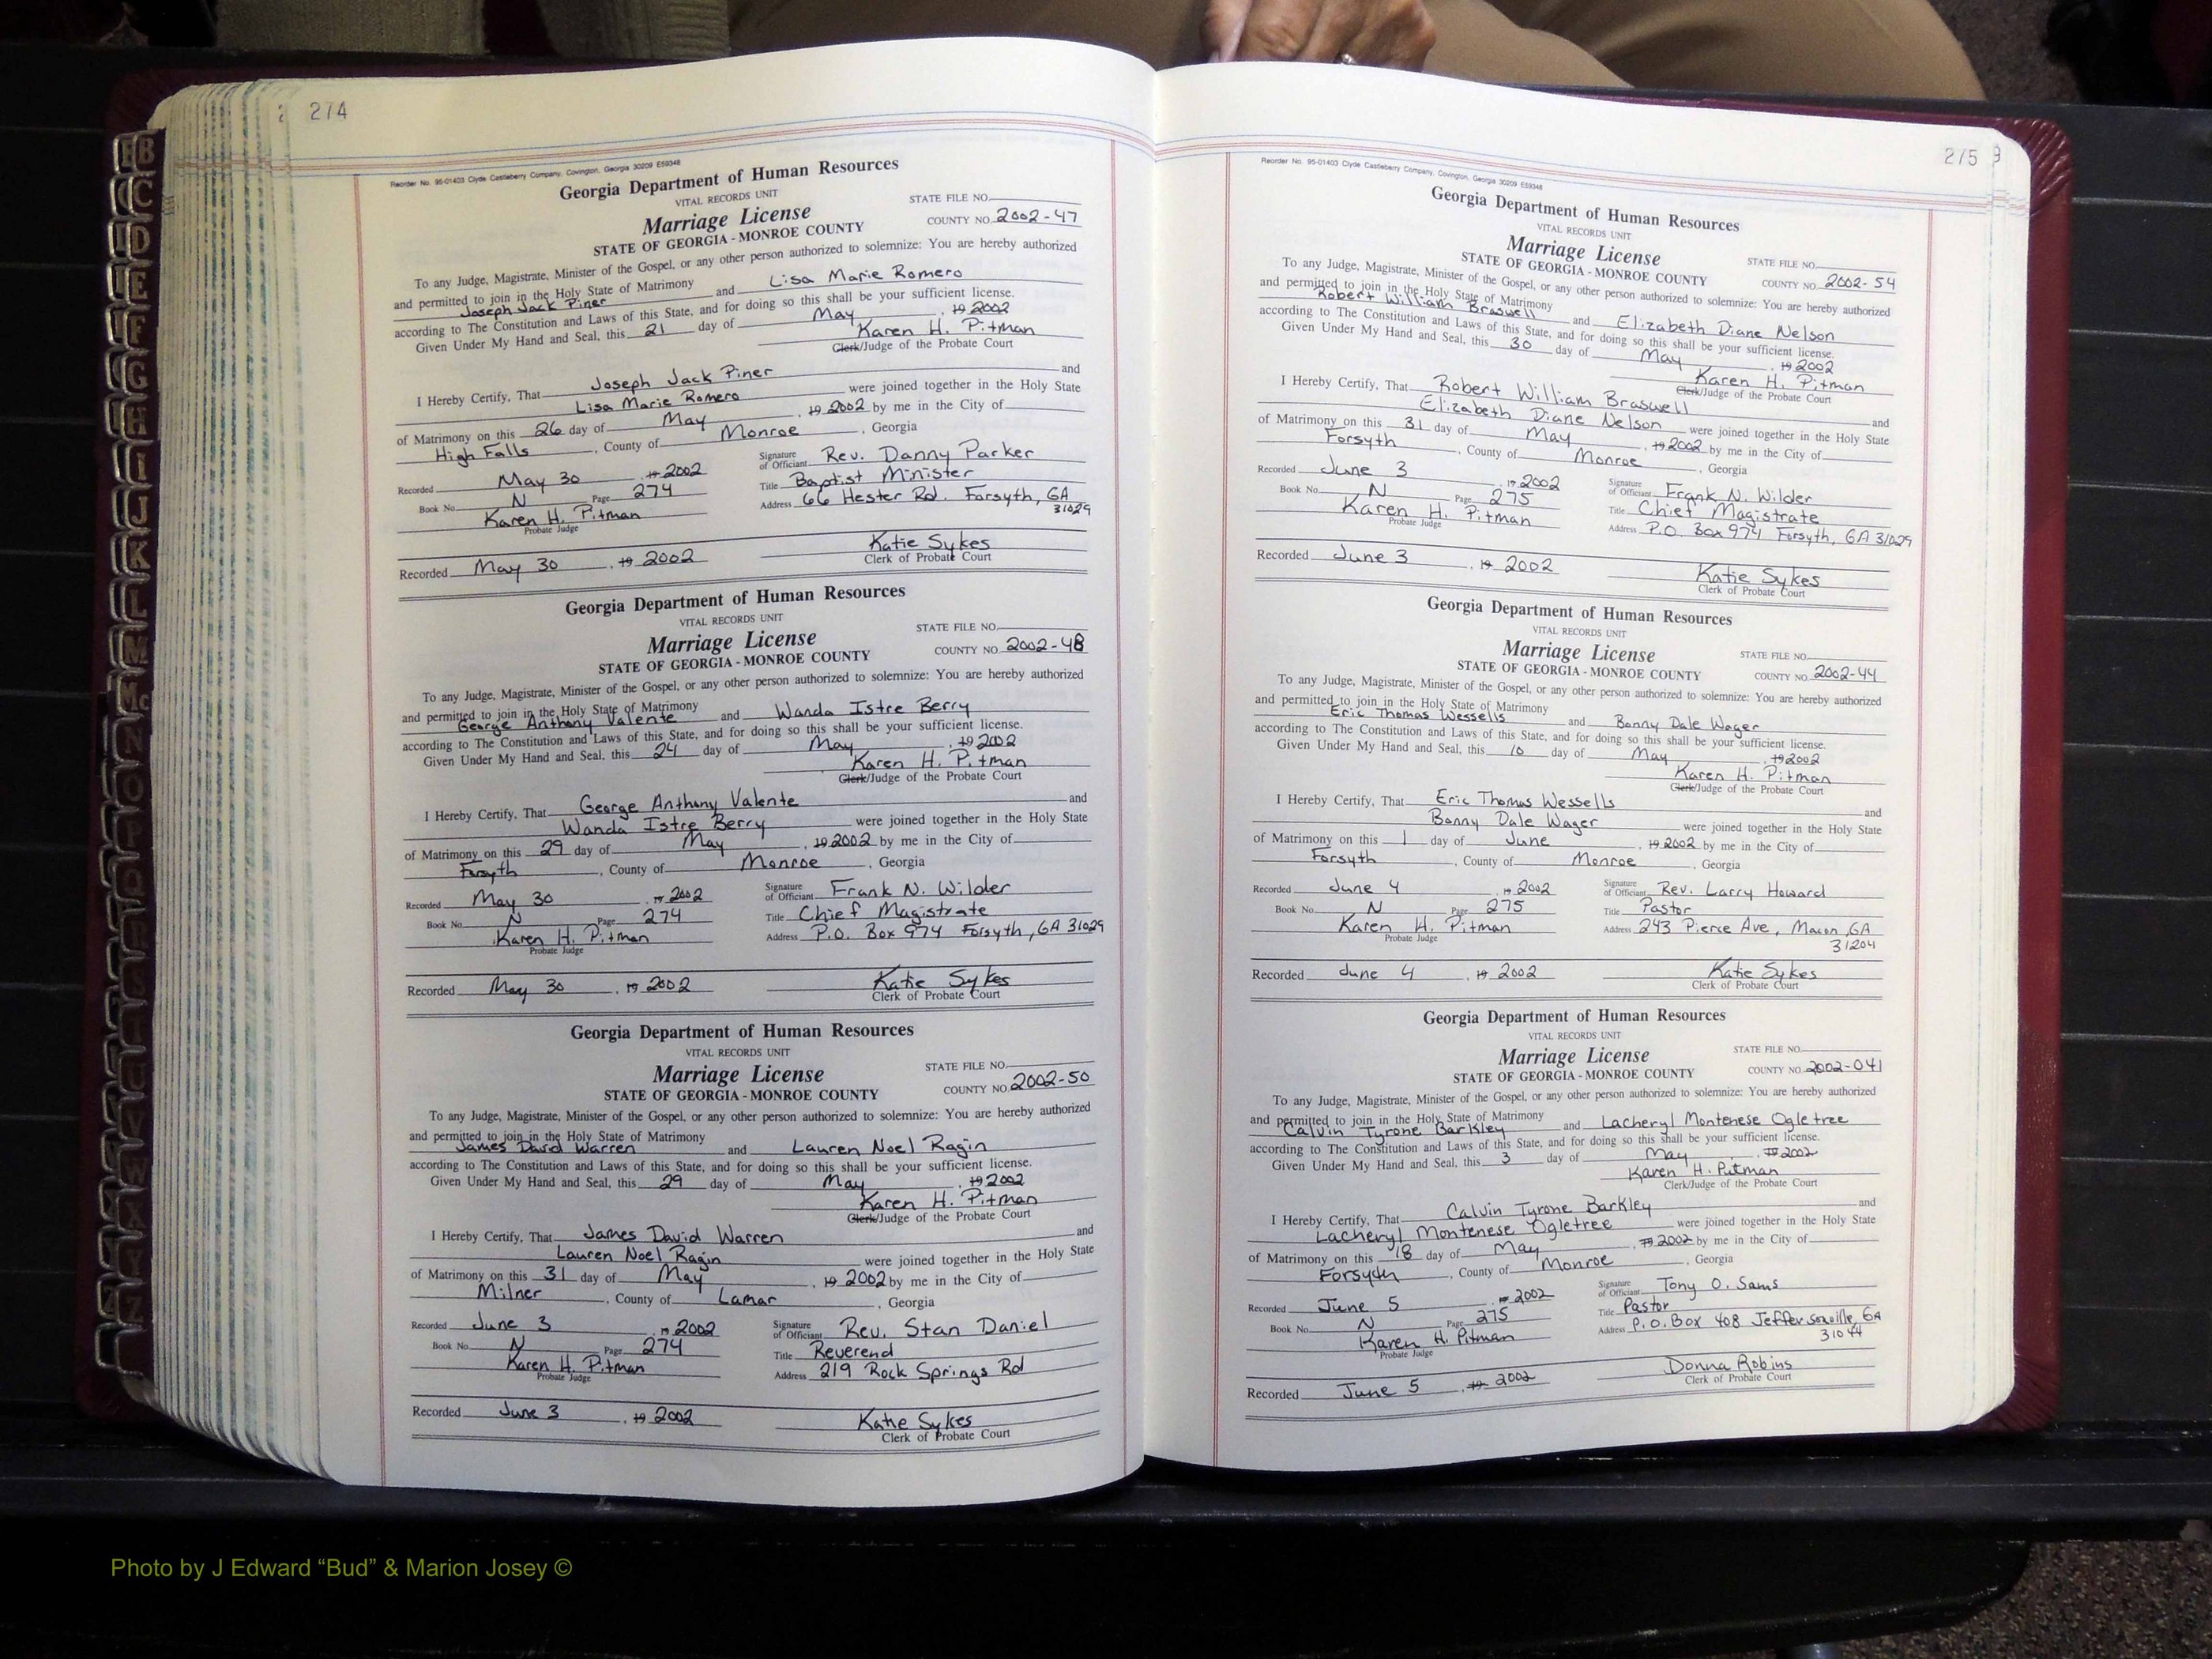 274
Reorder No. 95-01403 Clyde Castleberry Company, Covington, Georgia 30209 E59348
Georgia Department of Human Resources
VITAL RECORDS UNIT
STATE FILE NO.
Marriage License
COUNTY NO. 2002-47
STATE OF GEORGIA - MONROE COUNTY
To any Judge, Magistrate, Minister of the Gospel, or any other person authorized to solemnize: You are hereby authorized
and permitted to join in the Holy State of Matrimony
Joseph Jack Piner and Lisa Marie Romero
according to The Constitution and Laws of this State, and for doing so this shall be your sufficient license.
Given Under My Hand and Seal, this 21 day of May, 19 2002
Karen H. Pitman
Clerk/Judge of the Probate Court
I Hereby Certify, That Joseph Jack Piner and
Lisa Marie Romero were joined together in the Holy State
of Matrimony on this 26 day of May, 19 2002 by me in the City of
High Falls, County of Monroe, Georgia
Recorded May 30 19 2002
Signature of Officiant Rev. Danny Parker
Book No. N Page 274
Title Baptist Minister
Karen H. Pitman
Probate Judge
Address 66 Hester Rd. Forsyth, GA
31029
Recorded May 30, 19 2002
Katie Sykes
Clerk of Probate Court
Georgia Department of Human Resources
VITAL RECORDS UNIT
STATE FILE NO.
Marriage License
COUNTY NO. 2002-48
STATE OF GEORGIA - MONROE COUNTY
To any Judge, Magistrate, Minister of the Gospel, or any other person authorized to solemnize: You are hereby authorized
and permitted to join in the Holy State of Matrimony
George Anthony Valente and Wanda Istre Berry
according to The Constitution and Laws of this State, and for doing so this shall be your sufficient license.
Given Under My Hand and Seal, this 24 day of May, 19 2002
Karen H. Pitman
Clerk/Judge of the Probate Court
I Hereby Certify, That George Anthony Valente and
Wanda Istre Berry were joined together in the Holy State
of Matrimony on this 29 day of May, 19 2002 by me in the City of
Forsyth, County of Monroe, Georgia
Recorded May 30, 19 2002
Signature of Officiant Frank N. Wilder
Book No. N Page 274
Title Chief Magistrate
Karen H. Pitman
Probate Judge
Address P.O. Box 974 Forsyth, GA 31029
Recorded May 30, 19 2002
Katie Sykes
Clerk of Probate Court
Georgia Department of Human Resources
VITAL RECORDS UNIT
STATE FILE NO.
Marriage License
COUNTY NO. 2002-50
STATE OF GEORGIA - MONROE COUNTY
To any Judge, Magistrate, Minister of the Gospel, or any other person authorized to solemnize: You are hereby authorized
and permitted to join in the Holy State of Matrimony
James David Warren and Lauren Noel Ragin
according to The Constitution and Laws of this State, and for doing so this shall be your sufficient license.
Given Under My Hand and Seal, this 29 day of May, 19 2002
Karen H. Pitman
Clerk/Judge of the Probate Court
I Hereby Certify, That James David Warren and
Lauren Noel Ragin were joined together in the Holy State
of Matrimony on this 31 day of May, 19 2002 by me in the City of
Milner, County of Lamar, Georgia
Recorded June 3, 19 2002
Signature of Officiant Rev. Stan Daniel
Book No. N Page 274
Title Reverend
Karen H. Pitman
Probate Judge
Address 219 Rock Springs Rd
Recorded June 3, 19 2002
Katie Sykes
Clerk of Probate Court
275
Reorder No. 95-01403 Clyde Castleberry Company, Covington, Georgia 30209 E59348
Georgia Department of Human Resources
VITAL RECORDS UNIT
Marriage License
STATE FILE NO.
STATE OF GEORGIA - MONROE COUNTY
COUNTY NO. 2002-54
To any Judge, Magistrate, Minister of the Gospel, or any other person authorized to solemnize: You are hereby authorized
and permitted to join in the Holy State of Matrimony
Robert William Braswell and Elizabeth Diane Nelson
according to The Constitution and Laws of this State, and for doing so this shall be your sufficient license.
Given Under My Hand and Seal, this 30 day of May, 19 2002
Karen H. Pitman
Clerk/Judge of the Probate Court
I Hereby Certify, That Robert William Braswell and
Elizabeth Diane Nelson were joined together in the Holy State
of Matrimony on this 31 day of May, 19 2002 by me in the City of
Forsyth, County of Monroe, Georgia
Recorded June 3, 19 2002
Signature of Officiant Frank N. Wilder
Book No. N Page 275
Title Chief Magistrate
Karen H. Pitman
Probate Judge
Address P.O. Box 974 Forsyth, GA 31029
Recorded June 3, 19 2002
Katie Sykes
Clerk of Probate Court
Georgia Department of Human Resources
VITAL RECORDS UNIT
Marriage License
STATE FILE NO.
STATE OF GEORGIA - MONROE COUNTY
COUNTY NO. 2002-44
To any Judge, Magistrate, Minister of the Gospel, or any other person authorized to solemnize: You are hereby authorized
and permitted to join in the Holy State of Matrimony
Eric Thomas Wessells and Bonny Dale Wager
according to The Constitution and Laws of this State, and for doing so this shall be your sufficient license.
Given Under My Hand and Seal, this 10 day of May, 19 2002
Karen H. Pitman
Clerk/Judge of the Probate Court
I Hereby Certify, That Eric Thomas Wessells and
Bonny Dale Wager were joined together in the Holy State
of Matrimony on this 1 day of June, 19 2002 by me in the City of
Forsyth, County of Monroe, Georgia
Recorded June 4, 19 2002
Signature of Officiant Rev. Larry Howard
Book No. N Page 275
Title Pastor
Karen H. Pitman
Probate Judge
Address 243 Pierce Ave, Macon, GA
31204
Recorded June 4, 19 2002
Katie Sykes
Clerk of Probate Court
Georgia Department of Human Resources
VITAL RECORDS UNIT
Marriage License
STATE FILE NO.
STATE OF GEORGIA - MONROE COUNTY
COUNTY NO. 2002-041
To any Judge, Magistrate, Minister of the Gospel, or any other person authorized to solemnize: You are hereby authorized
and permitted to join in the Holy State of Matrimony
Calvin Tyrone Barkley and Lacheryl Montenese Ogletree
according to The Constitution and Laws of this State, and for doing so this shall be your sufficient license.
Given Under My Hand and Seal, this 3 day of May, 19 2002
Karen H. Pitman
Clerk/Judge of the Probate Court
I Hereby Certify, That Calvin Tyrone Barkley and
Lacheryl Montenese Ogletree were joined together in the Holy State
of Matrimony on this 18 day of May, 19 2002 by me in the City of
Forsyth, County of Monroe, Georgia
Recorded June 5, 19 2002
Signature of Officiant Tony O. Sams
Book No. N Page 275
Title Pastor
Karen H. Pitman
Probate Judge
Address P.O. Box 408 Jeffersonville, GA
31044
Recorded June 5, 19 2002
Donna Robins
Clerk of Probate Court
B
C
D
E
F
G
H
I
J
K
L
M
Mc
N
O
Photo by J Edward “Bud” & Marion Josey ©